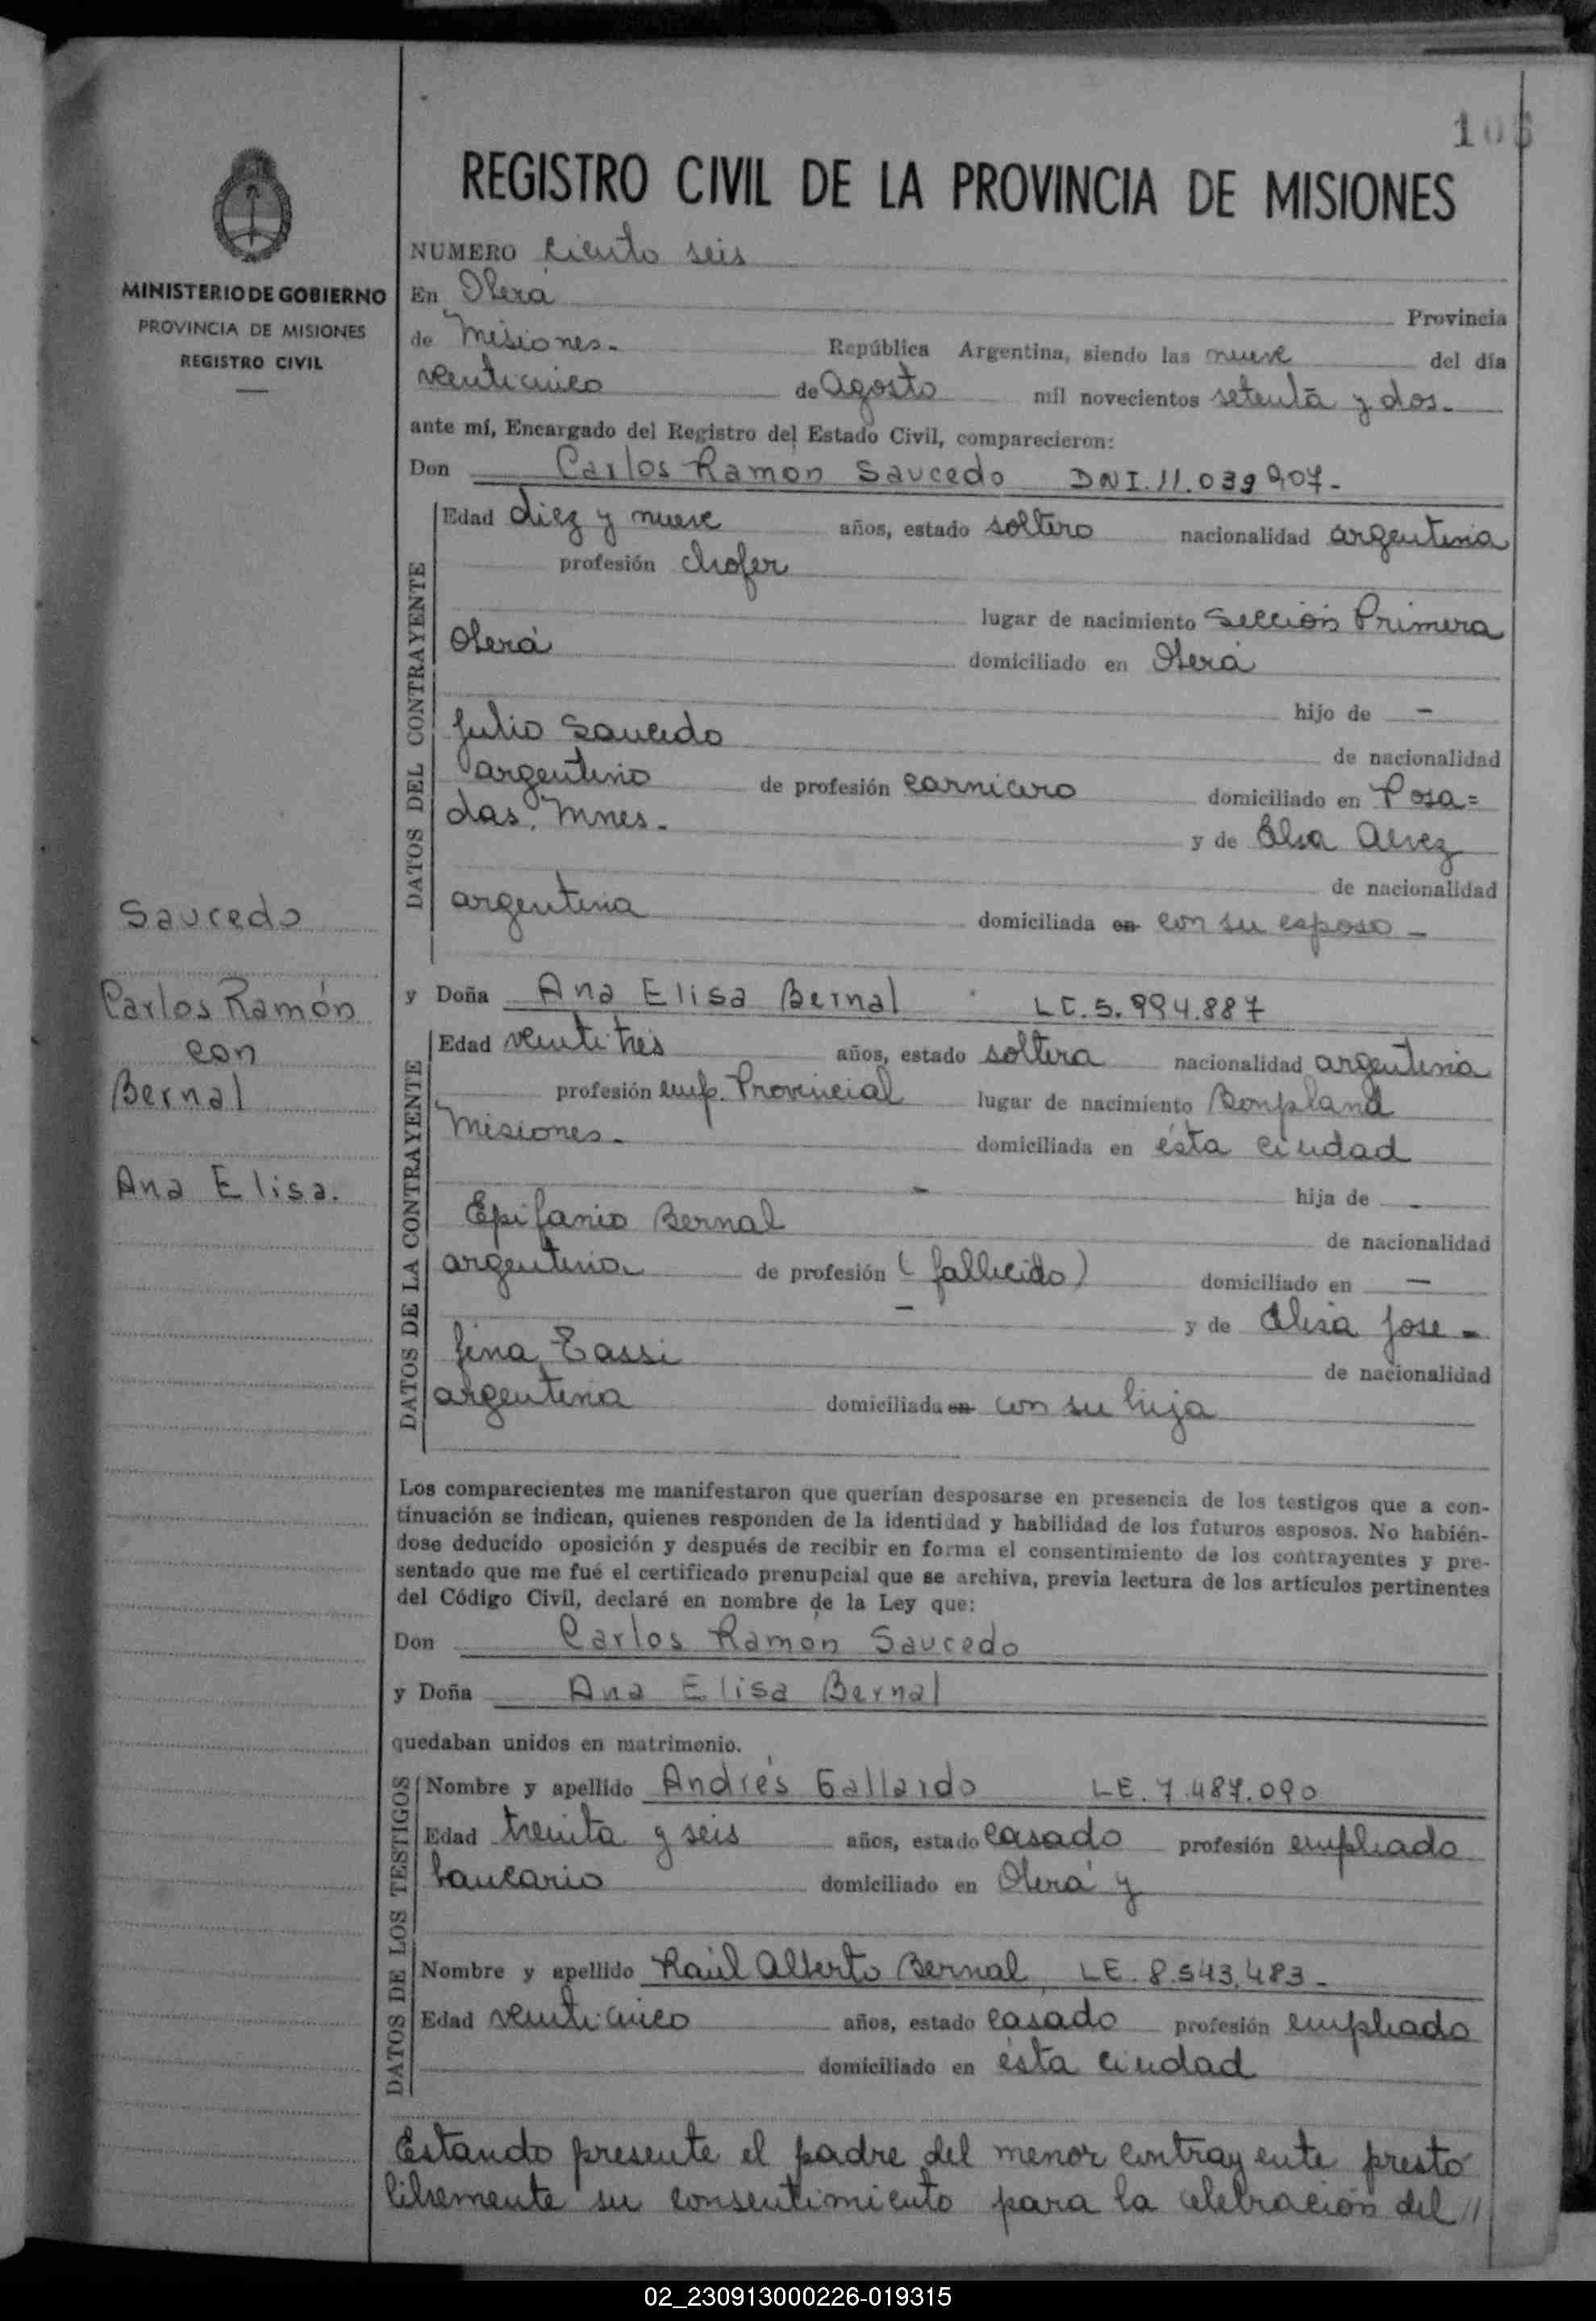 106
REGISTRO CIVIL DE LA PROVINCIA DE MISIONES
MINISTERIO DE GOBIERNO
PROVINCIA DE MISIONES
REGISTRO CIVIL
NUMERO Ciento seis
En Oberá Provincia
de Misiones.- República Argentina, siendo las nueve del día
venticinco de Agosto mil novecientos setenta y dos.
ante mí, Encargado del Registro del Estado Civil, comparecieron:
Don Carlos Ramon Saucedo DNI. 11.039.907-
DATOS DEL CONTRAYENTE
Edad diez y nueve años, estado soltero nacionalidad argentina
profesión chofer
lugar de nacimiento Sección Primera
Oberá domiciliado en Oberá
hijo de -
Julio Saucedo de nacionalidad
argentino de profesión carnicero domiciliado en Posa=
das. Mnes.- y de Elsa Alvez
de nacionalidad
argentina domiciliada en con su esposo -
Saucedo
Carlos Ramón
con
Bernal
Ana Elisa.
y Doña Ana Elisa Bernal LC. 5.994.887
DATOS DE LA CONTRAYENTE
Edad venti tres años, estado soltera nacionalidad argentina
profesión emp. Provincial lugar de nacimiento Bonpland
Misiones.- domiciliada en ésta ciudad
- hija de -
Epifanio Bernal de nacionalidad
argentina de profesión (fallecido) domiciliado en -
- y de Elisa Jose-
fina Tassi de nacionalidad
argentina domiciliada en con su hija
Los comparecientes me manifestaron que querían desposarse en presencia de los testigos que a con-
tinuación se indican, quienes responden de la identidad y habilidad de los futuros esposos. No habién-
dose deducido oposición y después de recibir en forma el consentimiento de los contrayentes y pre-
sentado que me fué el certificado prenupcial que se archiva, previa lectura de los artículos pertinentes
del Código Civil, declaré en nombre de la Ley que:
Don Carlos Ramón Saucedo
y Doña Ana Elisa Bernal
quedaban unidos en matrimonio.
DATOS DE LOS TESTIGOS
Nombre y apellido Andrés Gallardo LE. 7.487.090
Edad treinta y seis años, estado casado profesión empleado
bancario domiciliado en Oberá y
Nombre y apellido Raúl Alberto Bernal LE. 8.543.483-
Edad venticinco años, estado casado profesión empleado
domiciliado en ésta ciudad
Estando presente el padre del menor contrayente prestó
libremente su consentimiento para la celebración del //
02_230913000226-019315